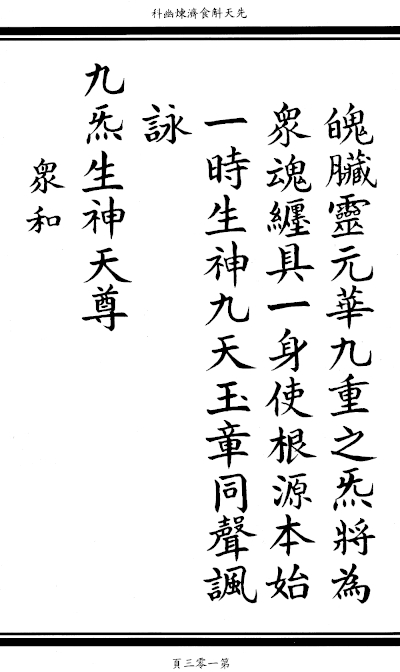 先天斛食濟煉幽科
魄臟靈元華九重之炁將為
眾魂纏具一身使根源本始
一時生神九天玉章同聲諷
詠
九炁生神天尊
眾和
第一零三頁